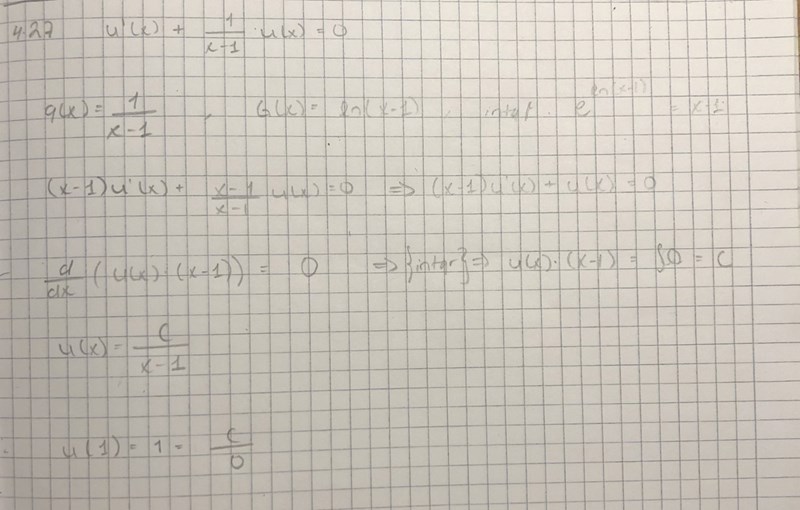 4.27 u'(x) + 1/(x-1) · u(x) = 0
g(x) = 1/(x-1) , G(x) = ln(x-1) , intef. e^ln(x-1) = x-1
(x-1)u'(x) + (x-1)/(x-1) u(x) = 0 => (x-1)u'(x) + u(x) = 0
d/dx (u(x)·(x-1)) = 0 => {integr} => u(x)·(x-1) = ∫0 = C
u(x) = C/(x-1)
u(1) = 1 = C/0